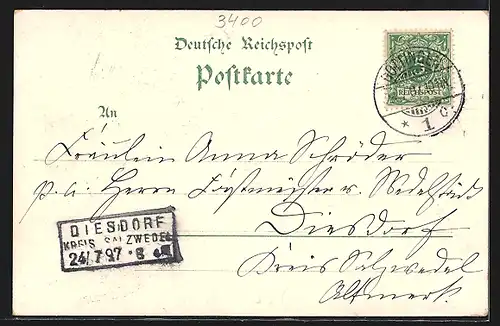 3400
Deutsche Reichspost
Postkarte
REICHSPOST
GÖTTINGEN
* 1 c.
An
Fräulein Anna Schröder
p. a. Herrn Forstmeister v. Medelstädt
Diesdorf
DIESDORF
KREIS SALZWEDEL
24/7 97
Kreis Salzwedel
Altmark